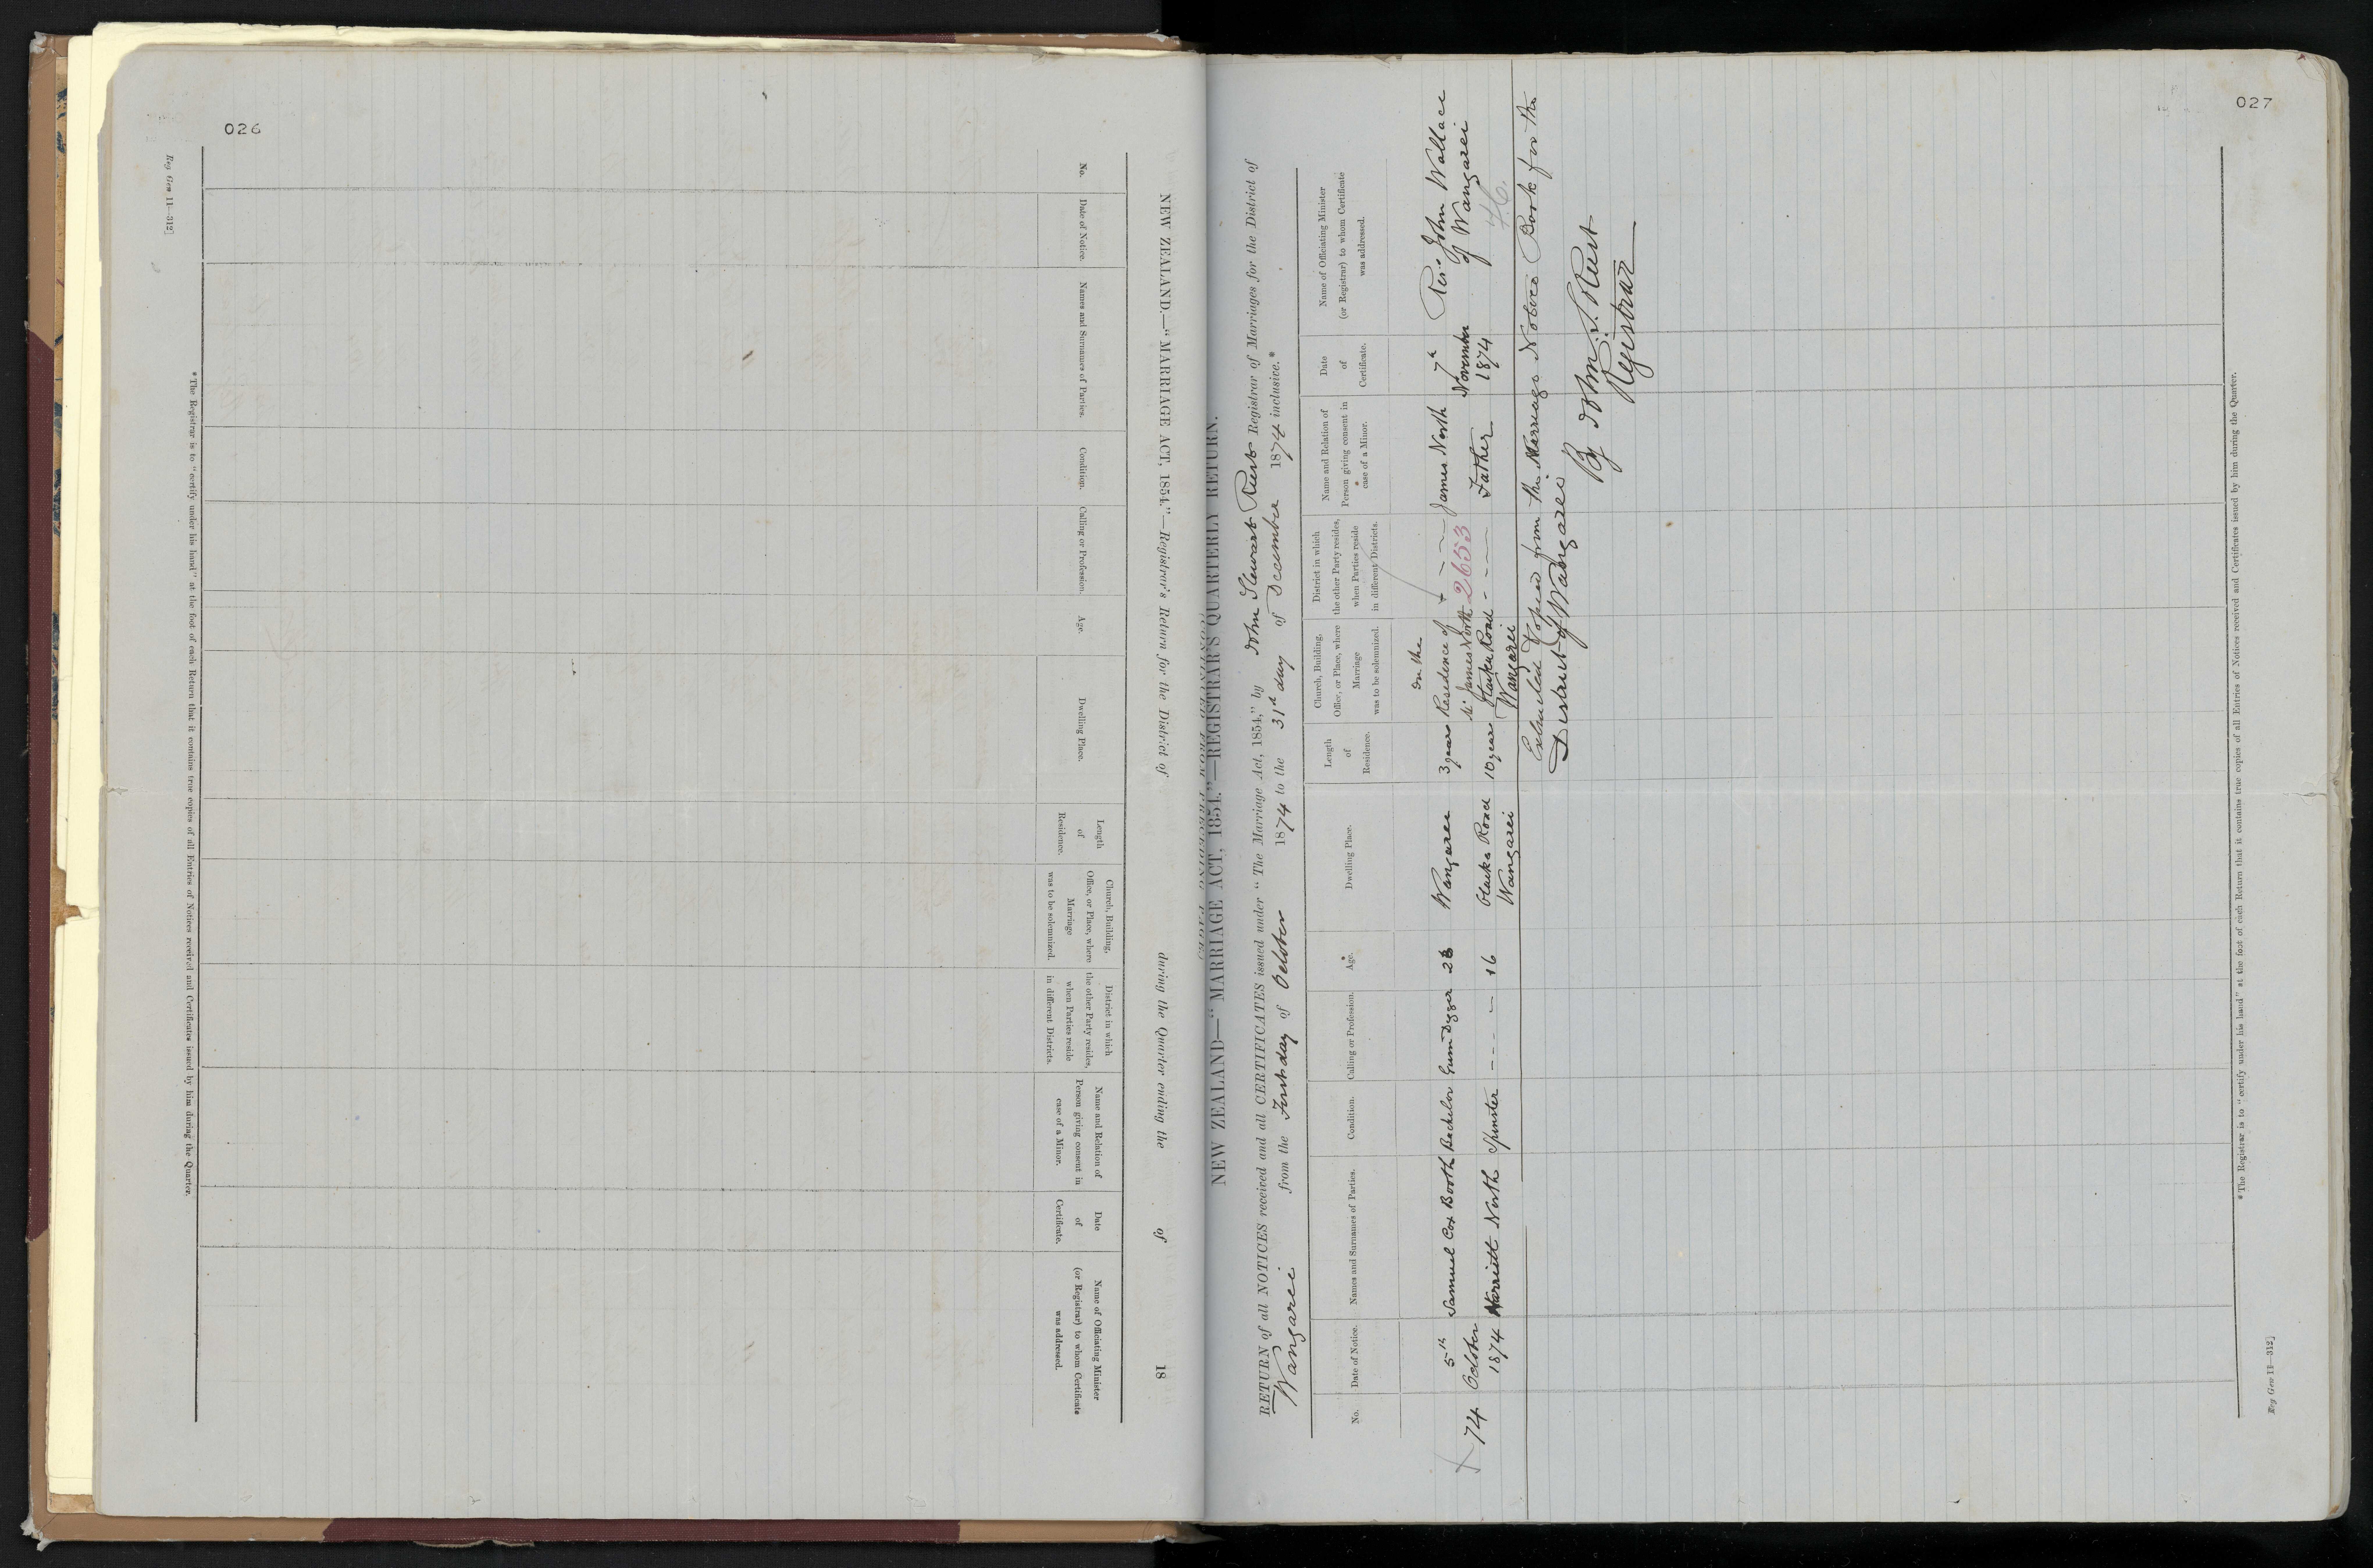 026
Reg Gen 11—312]
NEW ZEALAND.—“MARRIAGE ACT, 1854.”—Registrar's Return for the District of during the Quarter ending the of 18
No.
Date of Notice.
Names and Surnames of Parties.
Condition.
Calling or Profession.
Age.
Dwelling Place.
Length
of
Residence.
Church, Building,
Office, or Place, where
Marriage
was to be solemnized.
District in which
the other Party resides,
when Parties reside
in different Districts.
Name and Relation of
Person giving consent in
case of a Minor.
Date
of
Certificate.
Name of Officiating Minister
(or Registrar) to whom Certificate
was addressed.
*The Registrar is to “certify under his hand” at the foot of each Return that it contains true copies of all Entries of Notices received and Certificates issued by him during the Quarter.
027
NEW ZEALAND—“MARRIAGE ACT, 1854.”—REGISTRAR'S QUARTERLY RETURN.
RETURN of all NOTICES received and all CERTIFICATES issued under “The Marriage Act, 1854,” by John Stewart Rust Registrar of Marriages for the District of
Wangarei from the First day of October 1874 to the 31st day of December 1874 inclusive.*
No.
Date of Notice.
Names and Surnames of Parties.
Condition.
Calling or Profession.
Age.
Dwelling Place.
Length
of
Residence.
Church, Building,
Office, or Place, where
Marriage
was to be solemnized.
District in which
the other Party resides,
when Parties reside
in different Districts.
Name and Relation of
Person giving consent in
case of a Minor.
Date
of
Certificate.
Name of Officiating Minister
(or Registrar) to whom Certificate
was addressed.
74
5th
October
1874
Samuel Cox Booth
Harriett North
Bachelor
Spinster
Gum Digger
- - - -
16
Wangarei
Road
Wangarei
3 years
10 years
In the
Residence of
Mr James North
Road
Wangarei
2653
James North
Father
7th
November
1874
Revd John Wallace
of Wangarei
Extracted Copied from the Marriage Notice Book for the
District of Wangarei
By John S. Rust
Registrar
*The Registrar is to “certify under his hand” at the foot of each Return that it contains true copies of all Entries of Notices received and Certificates issued by him during the Quarter.
Reg Gen 11—312]